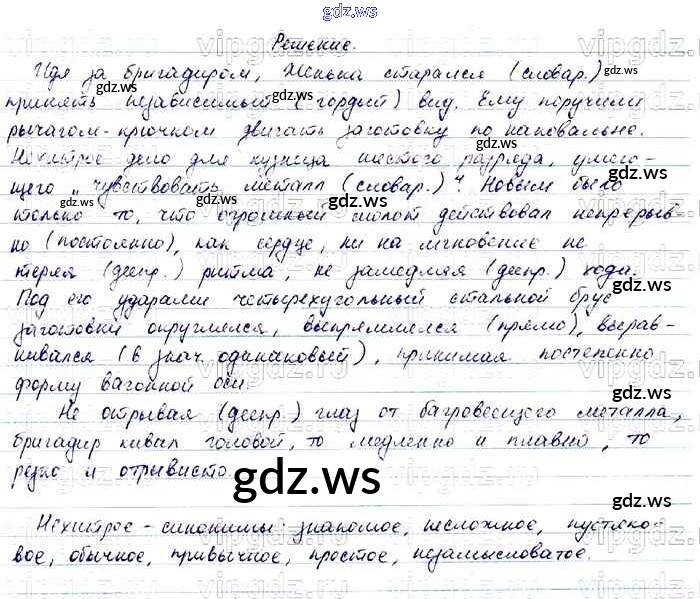 gdz.ws
Решение.
Идя за бригадиром, Женька старался (словар.)
принять независимый (гордый) вид. Ему поручили
рычагом-крючком двигать заготовку по наковальне.
Нехитрое дело для кузнеца шестого разряда, умею-
щего „чувствовать металл (словар.)“. Новым было
только то, что огромный молот действовал непрерыв-
но (постоянно), как сердце, ни на мгновение не
теряя (деепр.) ритма, не замедляя (деепр.) хода.
Под его ударами четырехугольный стальной брус
заготовки округлялся, выпрямлялся (прямо), вырав-
нивался (в знач. одинаковый), принимая постепенно
форму вагонной оси.
Не отрывая (деепр.) глаз от багровеющего металла,
бригадир кивал головой, то медленно и плавно, то
резко и отрывисто.
gdz.ws
Нехитрое - синонимы: знакомое, несложное, пустяко-
вое, обычное, привычное, простое, незамысловатое.